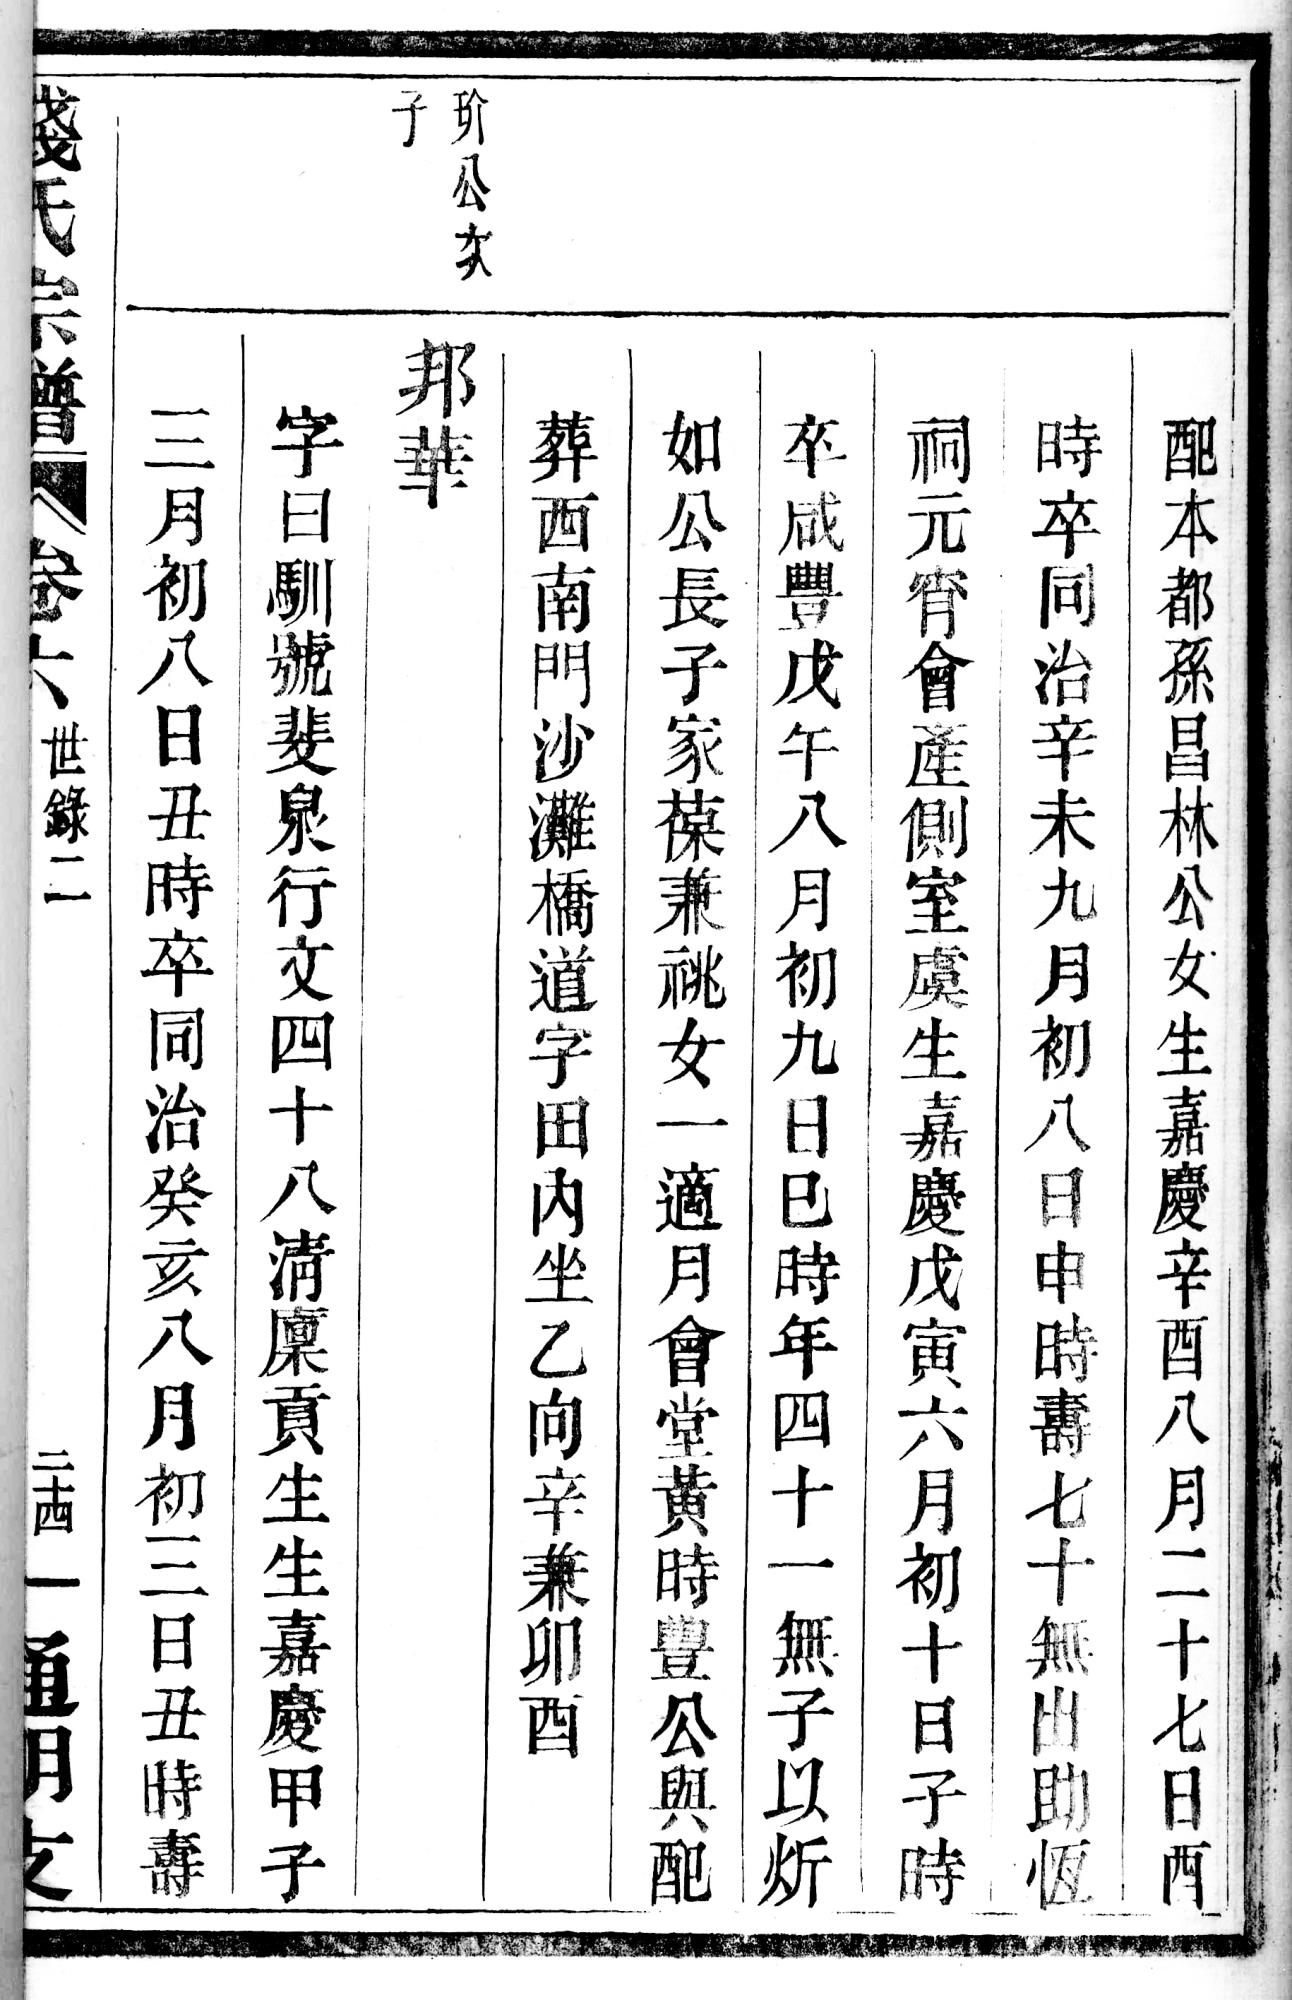 配本都孫昌林公女生嘉慶辛酉八月二十七日酉
時卒同治辛未九月初八日申時壽七十無出助恆
祠元宵會產側室虞生嘉慶戊寅六月初十日子時
卒咸豐戊午八月初九日巳時年四十一無子以炘
如公長子家葆兼祧女一適月會堂黃時豐公與配
葬西南門沙灘橋道字田內坐乙向辛兼卯酉
玠公次
子
邦華
字曰馴號斐泉行文四十八清廩貢生生嘉慶甲子
三月初八日丑時卒同治癸亥八月初三日丑時壽
錢氏宗譜 卷六 世錄二 二十四 通明支